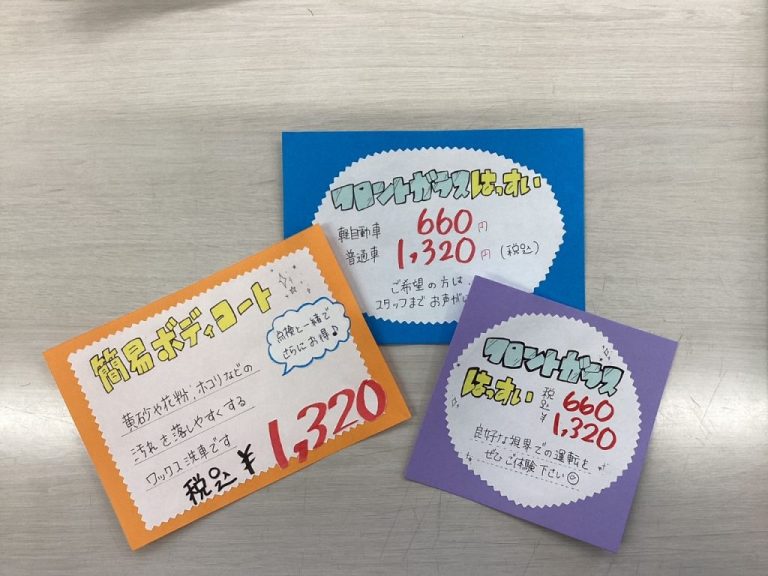 フロントガラスはっすい
軽自動車 660円
普通車 1,320円 (税込)
ご希望の方は
スタッフまでお声が
簡易ボディコート
点検と一緒で
さらにお得♪
黄砂や花粉・ホコリなどの
汚れを落しやすくする
ワックス洗車です
税込 ¥1,320
フロントガラス
はっすい
税込 660
¥1,320
良好な視界での運転を
ぜひご体験下さい